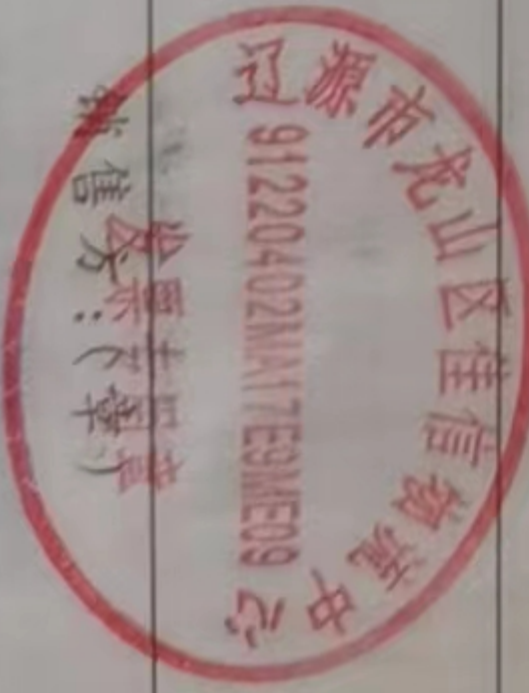 辽源市龙山区佳信物流中心
91220402MA17E9ME09
发票专用章
销售方：（章）